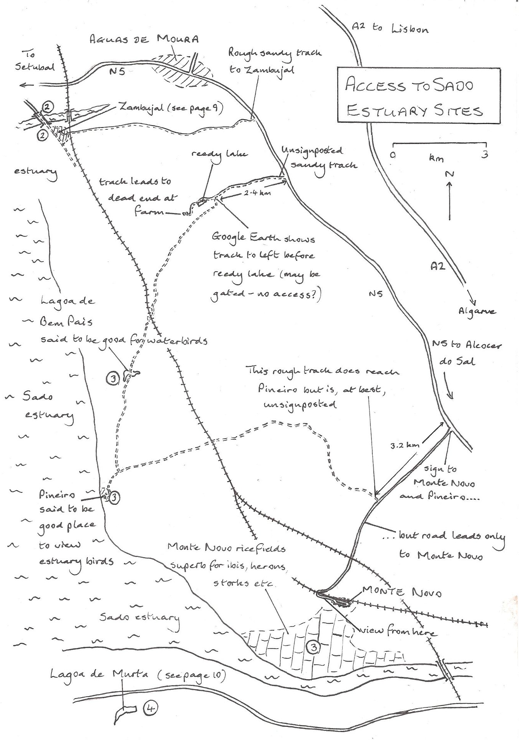 A2 to Lisbon
AGUAS DE MOURA
To
Setubal
N5
Rough sandy track
to Zambujal
ACCESS TO SADO
ESTUARY SITES
2
Zambujal (see page 9)
2
0
3
km
N
Unsignposted
sandy track
reedy lake
estuary
track leads to
dead end at
farm
2.4 km
Google Earth shows
track to left before
reedy lake (may be
gated - no access?)
A2
Algarve
N5
Lagoa de
Bem Pais
said to be good for waterbirds
N5 to Alcocer
do Sal
3
This rough track does reach
Pineiro but is, at best,
unsignposted
Sado
estuary
3.2 km
sign to
Monte Novo
and Pineiro....
Pineiro
said to be
good place
to view
estuary birds
3
... but road leads only
to Monte Novo
Monte Novo ricefields
superb for ibis, herons,
storks etc.
MONTE NOVO
view from here
Sado estuary
3
Lagoa de Murta (see page 10)
4